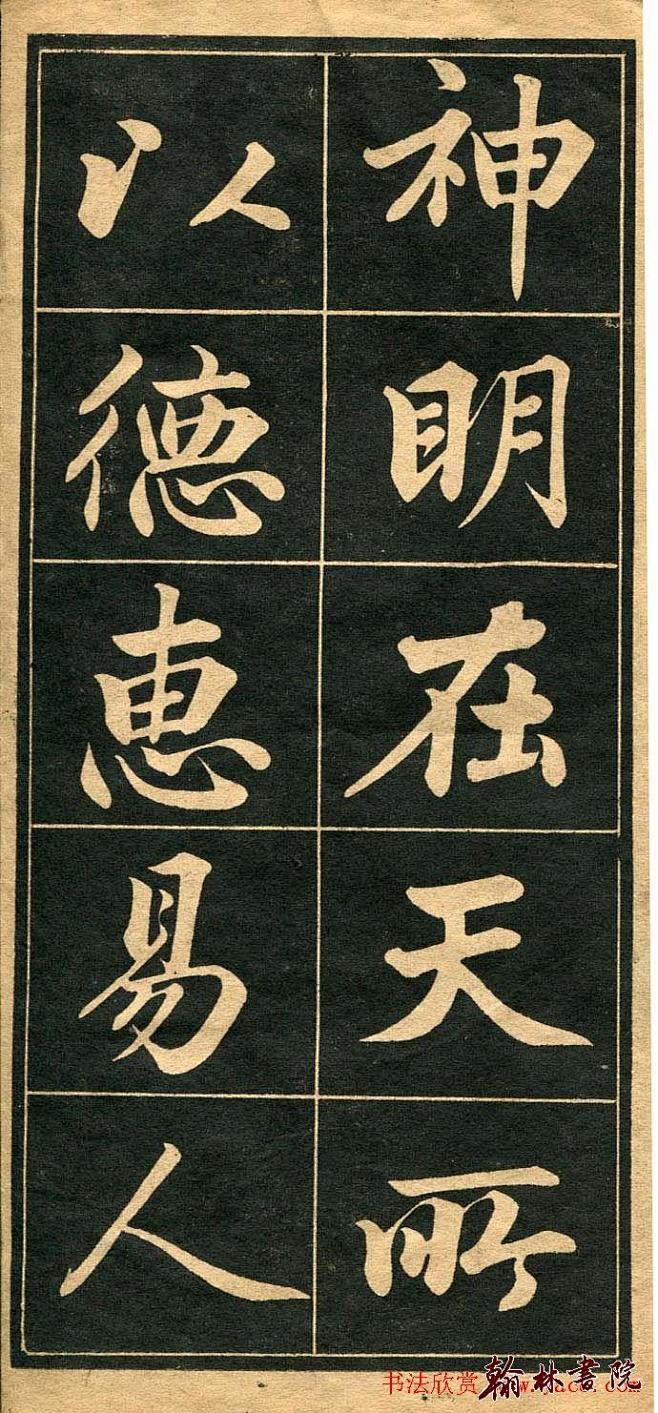 神明在天所
以德惠易人
书法欣赏
翰林書院